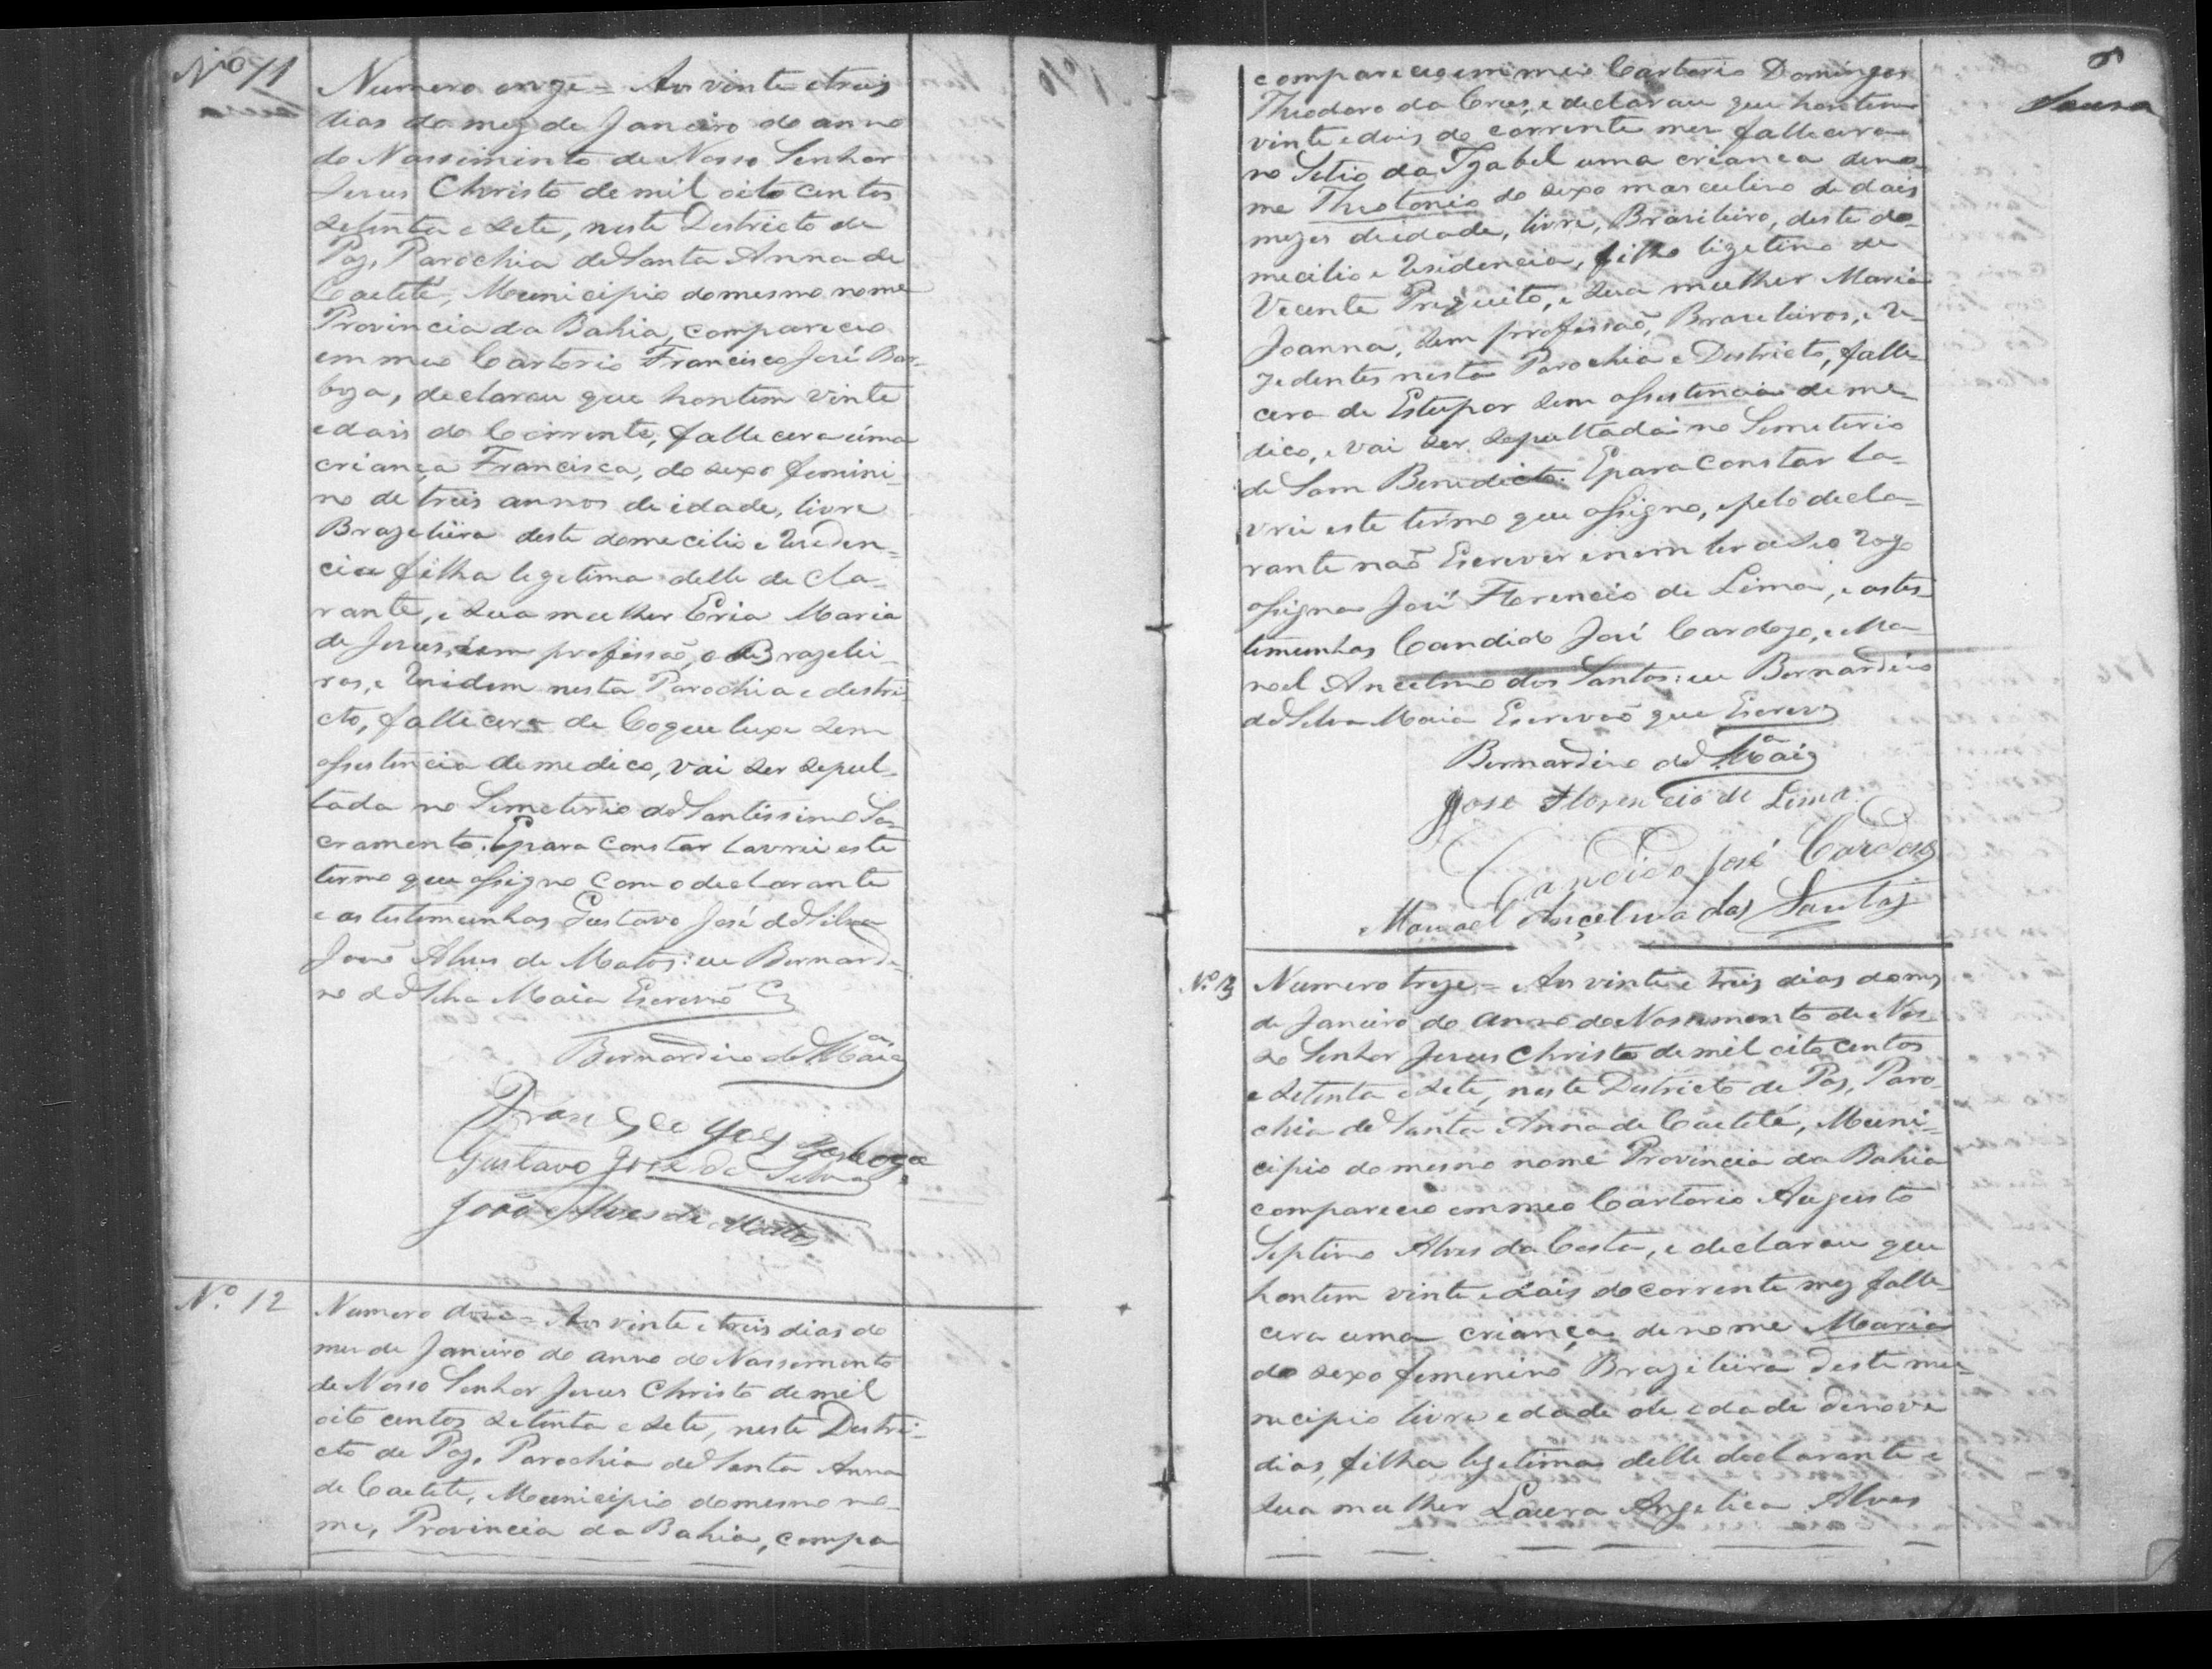 Nº 11
Numero onze = Aos vinte e treis
dias do mez de Janeiro do anno
do Nassimento de Nosso Senhor
Jesus Christo de mil oito centos
setenta e sete, neste Destricto de
Paz, Parochia de Santa Anna de
Caeteté, Municipio do mesmo nome
Provincia da Bahia, compareceo
em meo Cartorio Francisco José Bar-
boza, declarou que hontem vinte
e dois do Corrente, fallecera uma
criança Francisca, do sexo femini-
no de treis annos de idade, livre
Brazeleira deste domecilio e Residen=
cia filha legetima delle decla-
rante, e sua mulher Eria Maria
de Jesus, sem profissaõ, Brazelei-
ros, e Residem nesta Parochia e destri-
cto, fallecera de Coqueluxe sem
assestencia de medico, vai ser sepul-
tada no Semeterio do Santissimo Sa-
cramento. E para constar lavrei este
termo que assigno com o declarante
e as testemunhas Gustavo José da Silva
João Alves de Matos: eu Bernardi-
no da Silva Maia Escrivaõ
Bernardino da Sª Maia
Francisco José Barboza
Gustavo José da Silva
João Alves de Mattos
Nº 12
Numero doze = Aos vinte e treis dias do
mez de Janeiro do anno do Nassemento
de Nosso Senhor Jesus Christo de mil
oito centos setenta e sete, neste Destri-
cto de Paz, Parochia de Santa Anna
de Caeteté, Municipio do mesmo no-
me, Provincia da Bahia, compa
8
Sousa
compareceo em meo Cartorio Domingos
Theodoro da Cruz, e declarou que hontem
vinte e dois do corrente mez fallecera
no Setio da Izabel uma criança de no-
me Theotonio do sexo masculino de dois
mezes de idade, livre, Brasileiro, deste do-
mecilio e Residencia, filho legetimo de
Vicente Priquito, e sua mulher Maria
Joanna, sem profissaõ, Braseleiros, e Re-
zedentes nesta Parochia e Destricto, falle-
cera de Estupor sem assestencia de me-
dico, e vai ser sepultada no Semeterio
de Sam Benedicto. E para constar la-
vrei este termo que assigno, e pelo decla-
rante naõ Escrever e nem ler a seo rogo
assigna José Florencio de Lima, e as tes-
temunhas Candido José Cardozo, e Ma-
noel Ancelmo dos Santos: eu Bernardino
da Silva Maia Escrivaõ que Escrevy
Bernardino da Sª Maia
Jose Florencio de Lima
Candido José Cardozo
Manoel Ançelmo dos Santos
Nº 13
Numero treze = Aos vinte e treis dias do mez
de Janeiro do anno do Nassemento de Nos-
so Senhor Jesus Christo de mil oito centos
e setenta e sete, neste Destricto de Paz, Paro-
chia de Santa Anna de Caeteté, Muni-
cipio do mesmo nome Provincia da Bahia
compareceo em meo Cartorio Augusto
Septimo Alves da Costa, e declarou que
hontem vinte e dois do corrente mez falle-
cera uma criança de nome Maria
do sexo femenino Brazileira deste mu-
nicipio livre e dade de idade de nove
dias, filha legetima delle declarante e
sua mulher Laura Angelica Alves